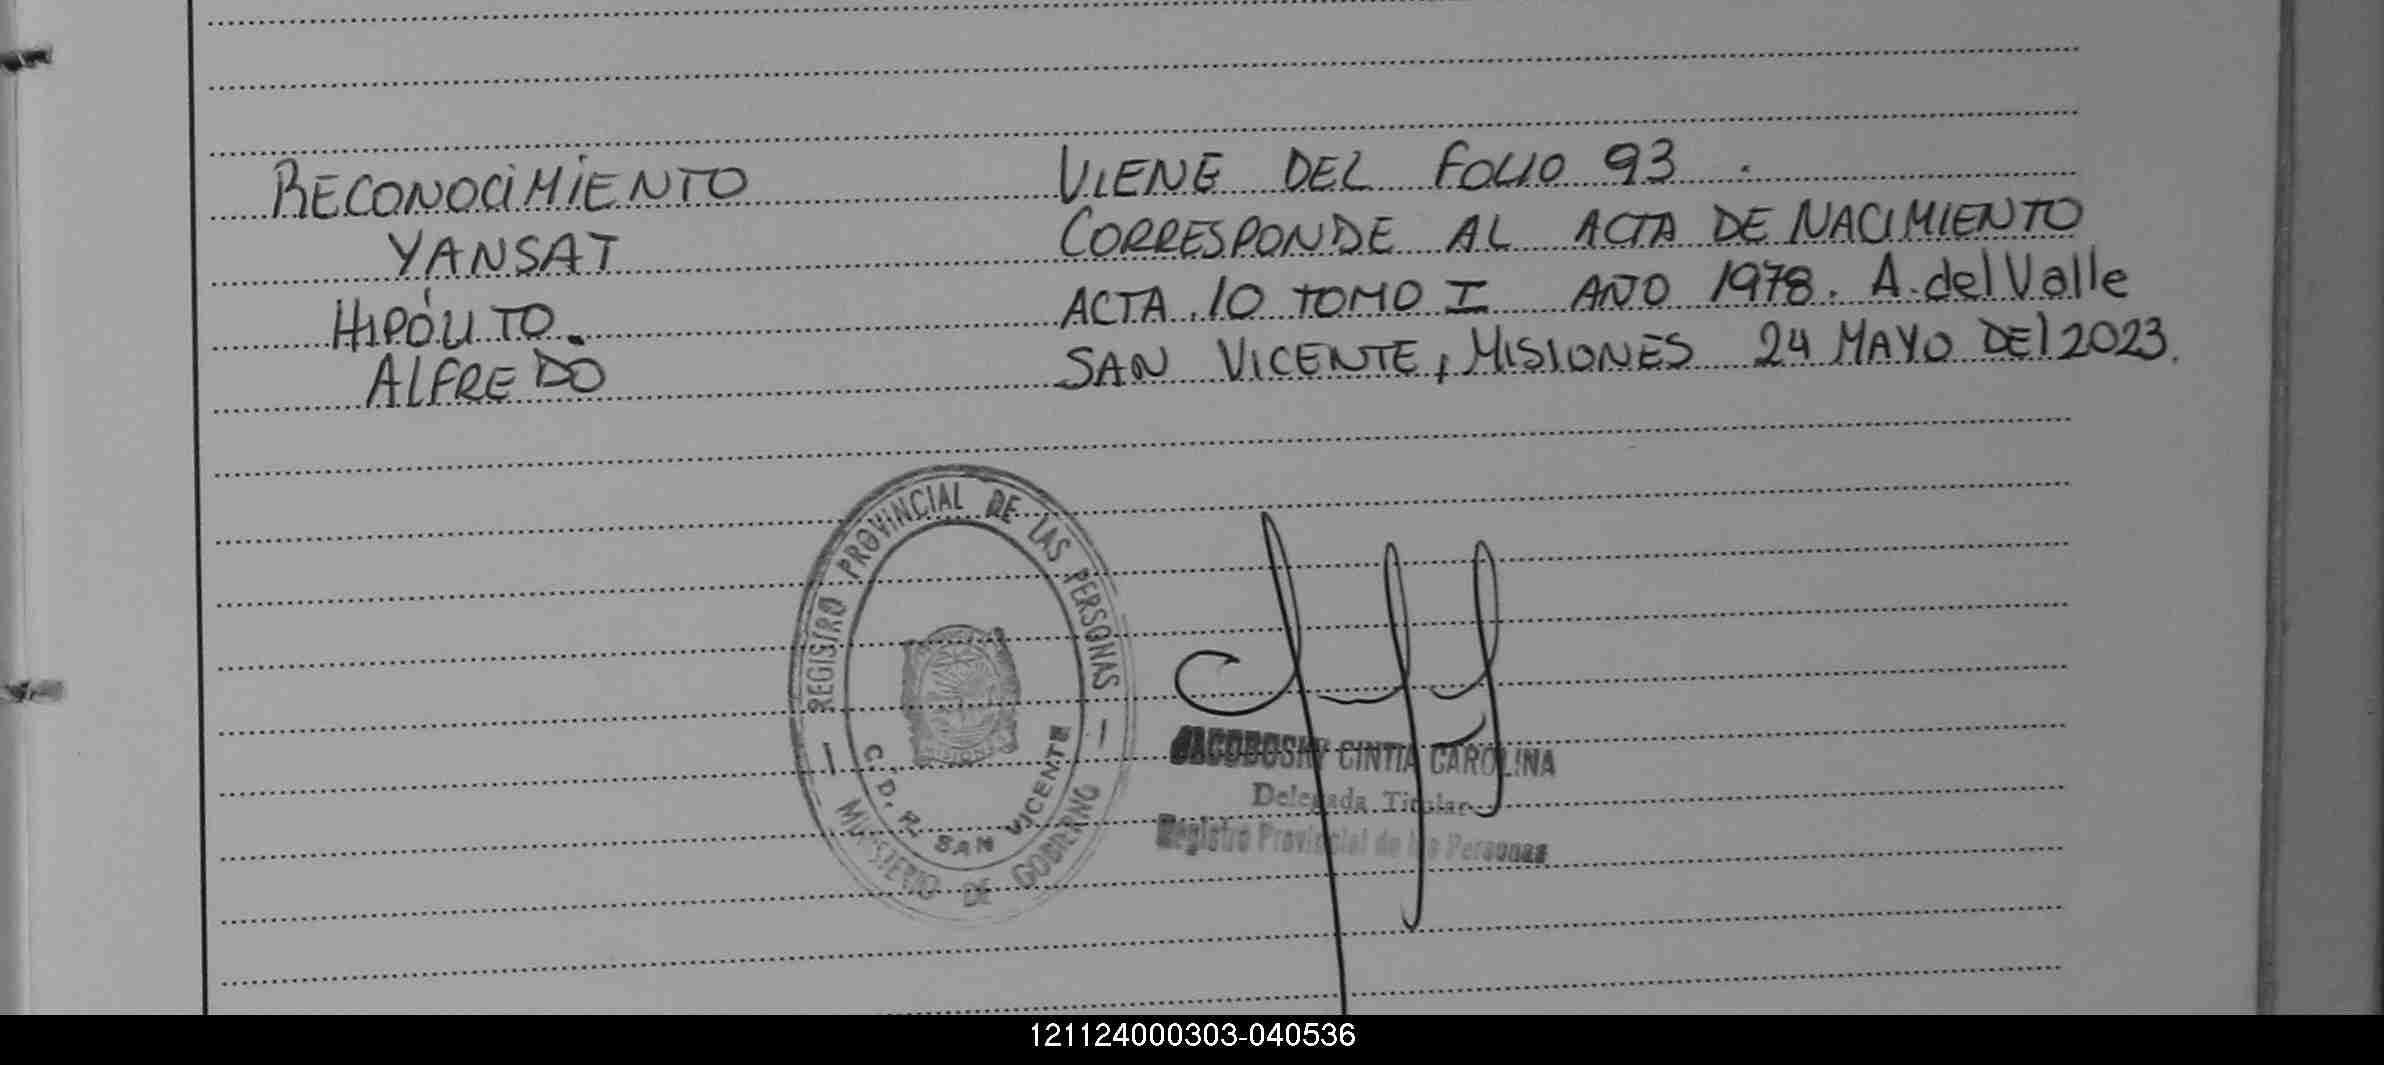 RECONOCIMIENTO
YANSAT
HIPÓLITO.
ALFREDO
VIENE DEL FOLIO 93.
CORRESPONDE AL ACTA DE NACIMIENTO
ACTA 10 TOMO I AÑO 1978. A. del Valle
SAN VICENTE, MISIONES 24 MAYO DEL 2023.
REGISTRO PROVINCIAL DE LAS PERSONAS
MINISTERIO DE GOBIERNO
C. D. R. SAN VICENTE
MISIONES
JACOBOSKY CINTIA CAROLINA
Delegada Titular
Registro Provincial de las Personas
121124000303-040536